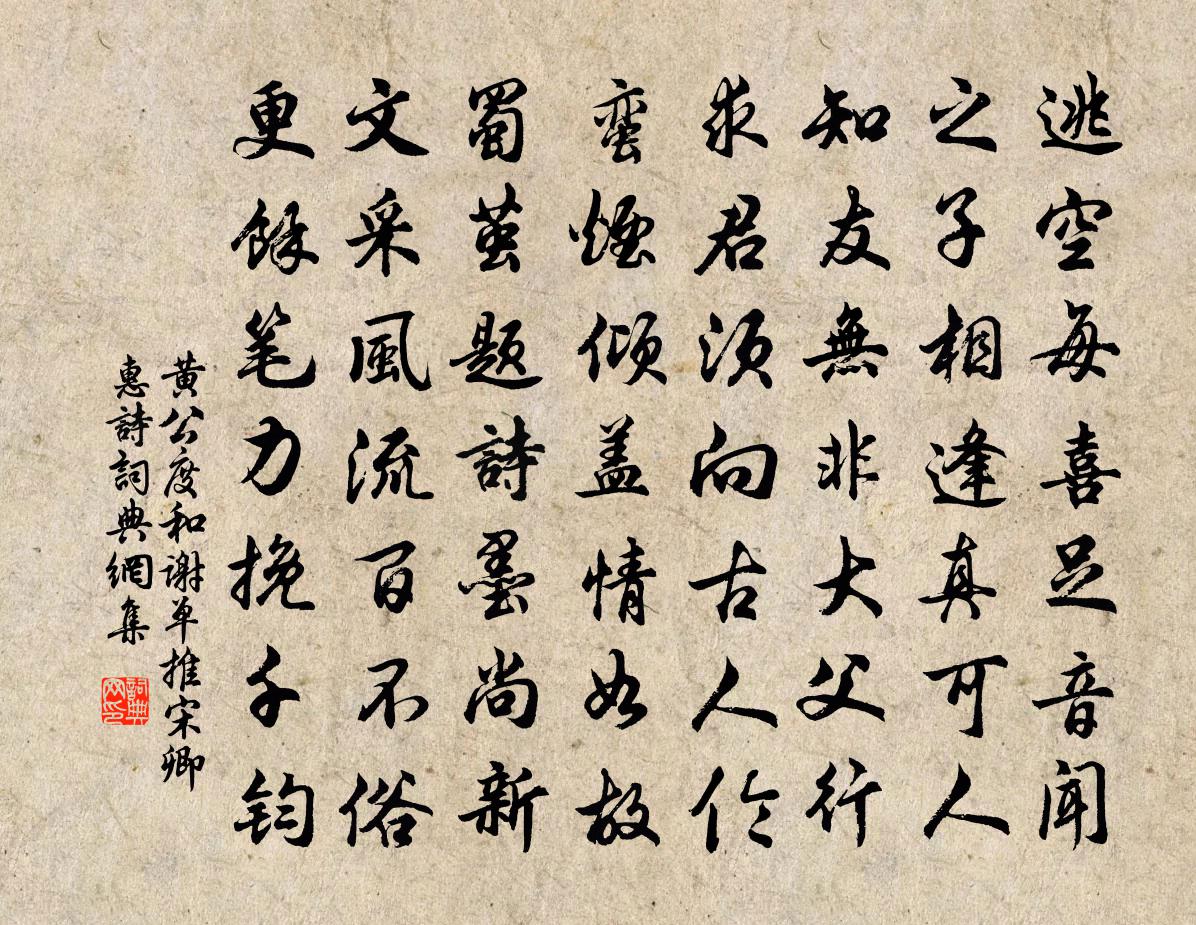 逃空每喜足音聞
之子相逢真可人
知友無非大父行
求君須向古人伦
蛮煙傾盖情如故
蜀茧題詩墨尚新
文采風流百不俗
更餘笔力挽千钧
黄公度和谢单推宋卿
惠詩詞典網集
詞典
网印